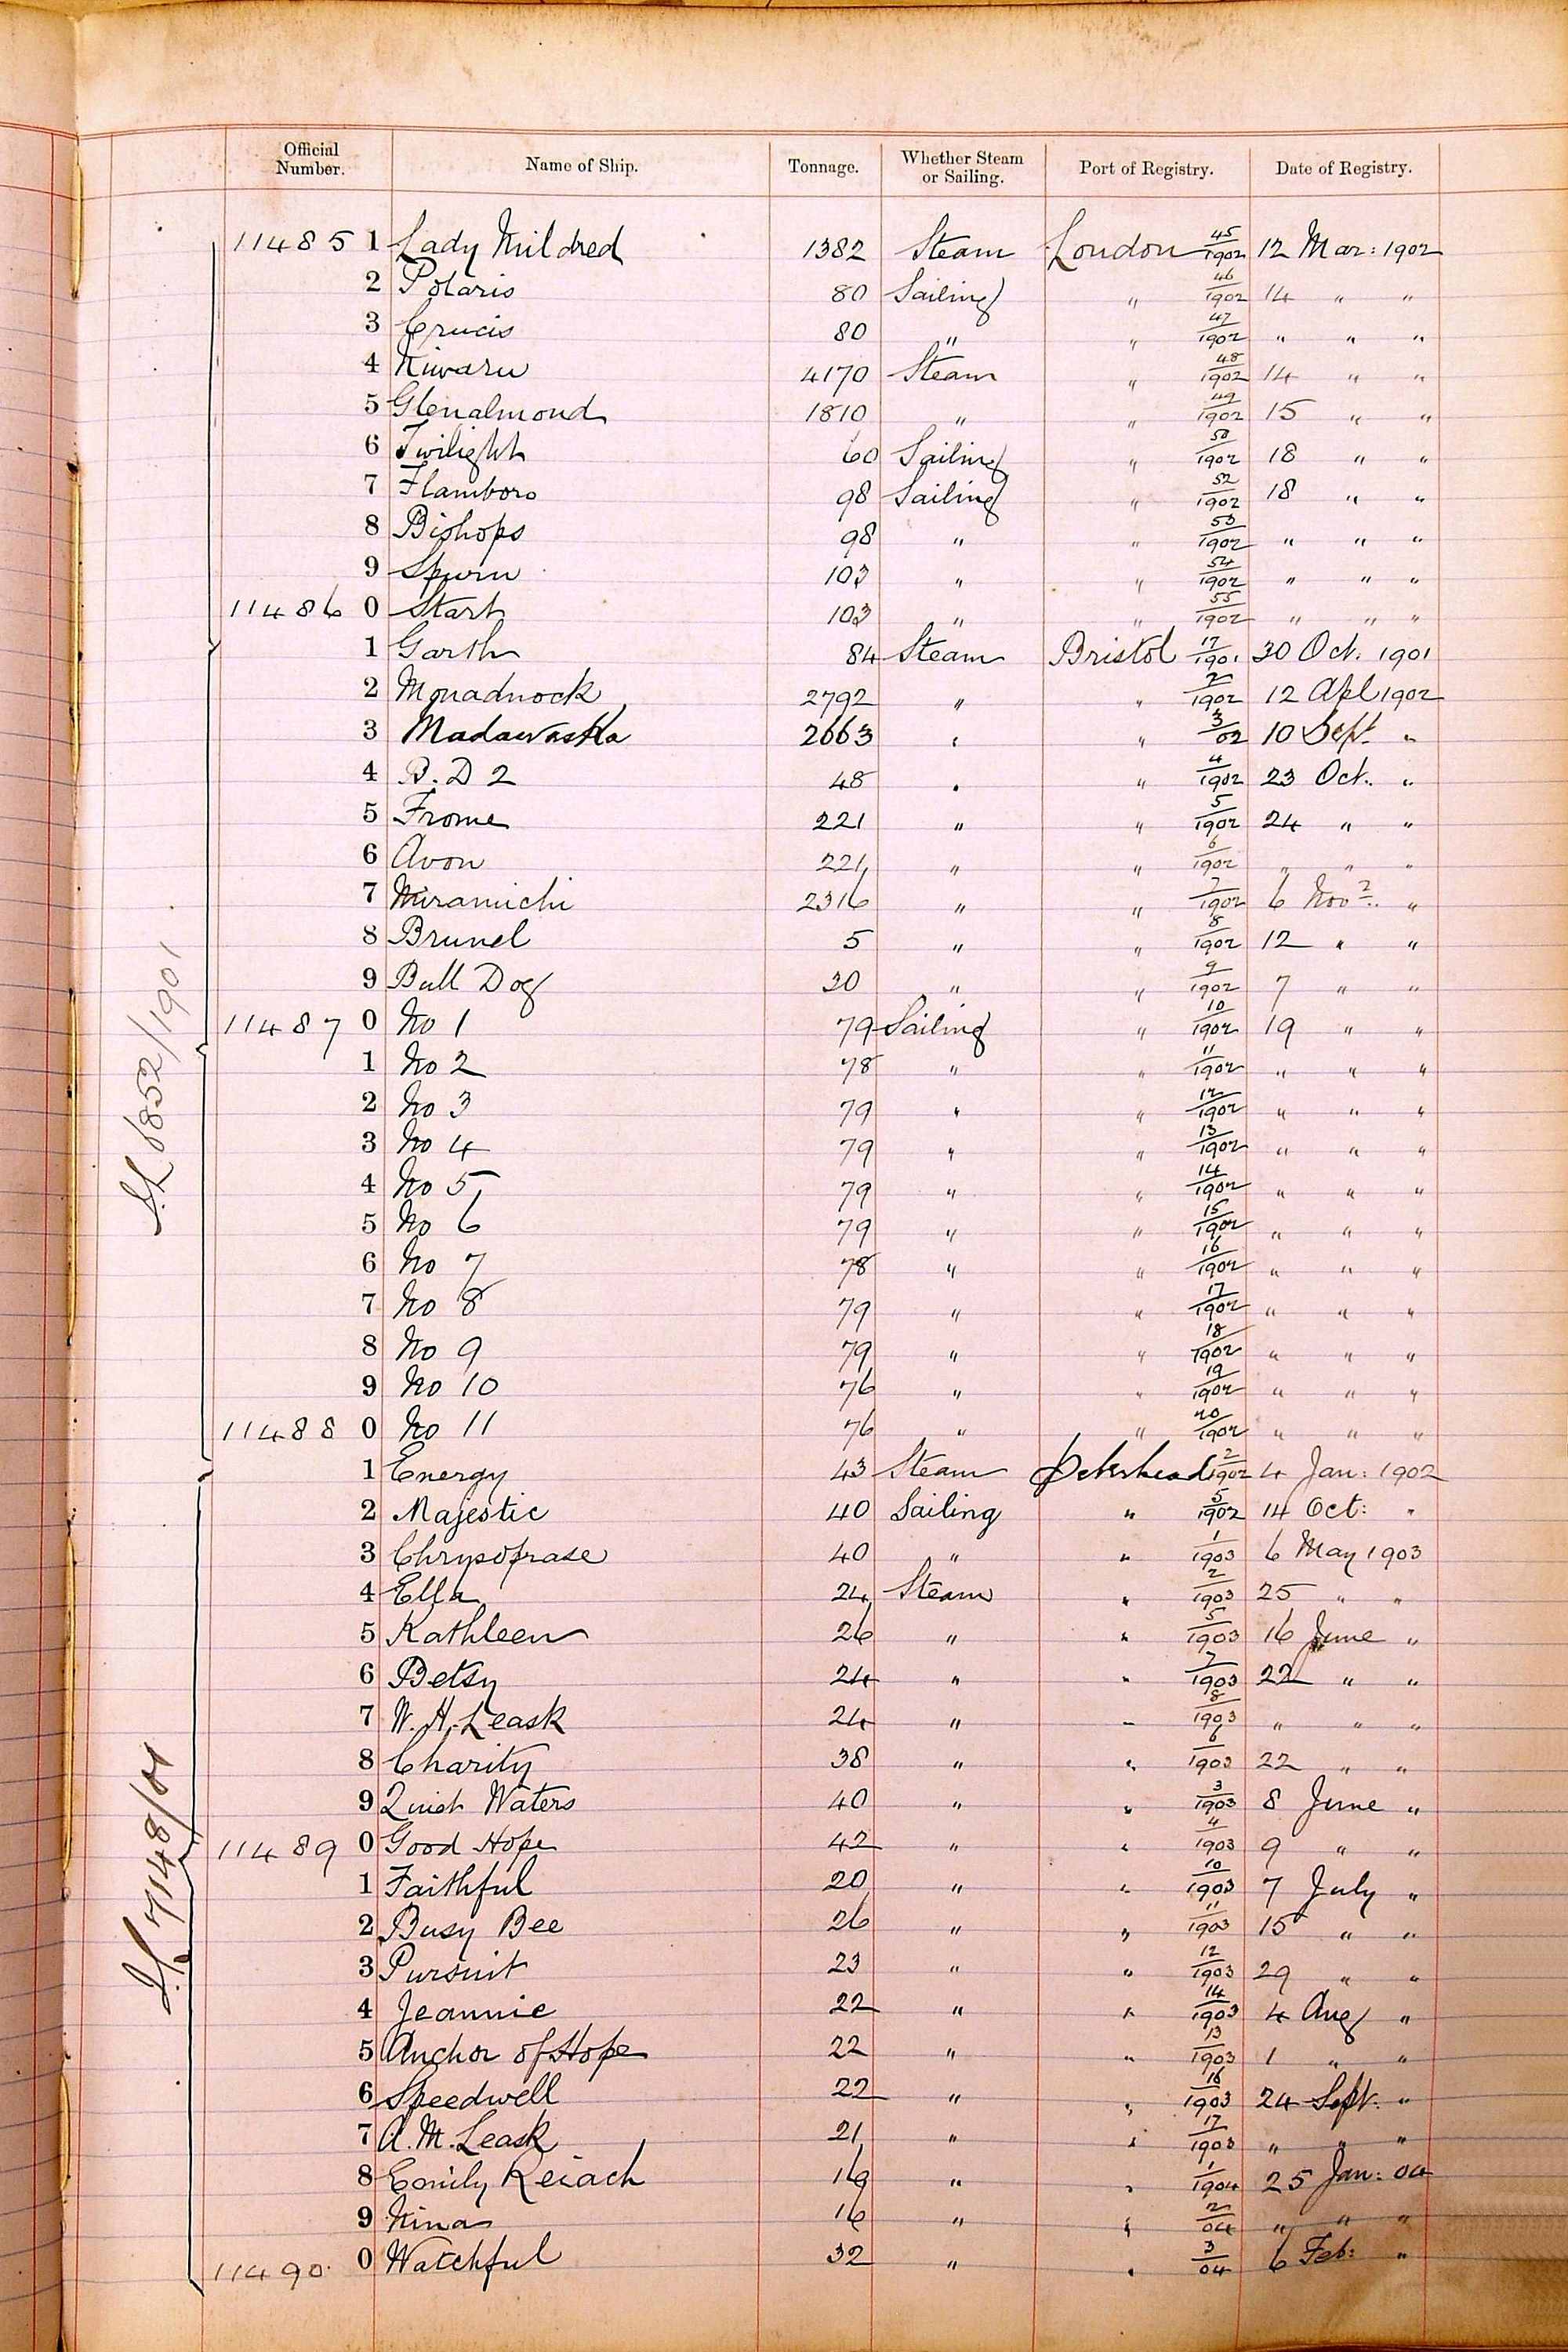 Official Number. Name of Ship. Tonnage. Whether Steam or Sailing. Port of Registry. Date of Registry.
11485 1 Lady Mildred 1382 Steam London 45/1902 12 Mar: 1902
2 Polaris 80 Sailing " 46/1902 14 " "
3 Crucis 80 " " 47/1902 " " "
4 Kiwaru 4170 Steam " 48/1902 14 " "
5 Glenalmond 1810 " " 49/1902 15 " "
6 Twilight 60 Sailing " 50/1902 18 " "
7 Flamboro 98 Sailing " 52/1902 18 " "
8 Bishops 98 " " 53/1902 " " "
9 Spurn 103 " " 54/1902 " " "
11486 0 Start 103 " " 55/1902 " " "
1 Garth 84 Steam Bristol 17/1901 30 Oct. 1901
2 Monadnock 2792 " " 2/1902 12 Apl 1902
3 Madawaska 2663 " " 3/02 10 Sept "
4 B. D 2 48 " " 4/1902 23 Oct. "
5 Frome 221 " " 5/1902 24 " "
6 Avon 221 " " 6/1902 " " "
7 Miramichi 2316 " " 7/1902 6 Novr. "
8 Brunel 5 " " 8/1902 12 " "
9 Bull Dog 30 " " 9/1902 7 " "
11487 0 No 1 79 Sailing " 10/1902 19 " "
1 No 2 78 " " 11/1902 " " "
2 No 3 79 " " 12/1902 " " "
3 No 4 79 " " 13/1902 " " "
4 No 5 79 " " 14/1902 " " "
5 No 6 79 " " 15/1902 " " "
6 No 7 78 " " 16/1902 " " "
7 No 8 79 " " 17/1902 " " "
8 No 9 79 " " 18/1902 " " "
9 No 10 76 " " 19/1902 " " "
11488 0 No 11 76 " " 20/1902 " " "
6852/1901
1 Energy 43 Steam Peterhead 2/1902 4 Jan: 1902
2 Majestic 40 Sailing " 5/1902 14 Oct: "
3 Chrysoprase 40 " " 1/1903 6 May 1903
4 Ella 24 Steam " 2/1903 25 " "
5 Kathleen 26 " " 5/1903 16 June "
6 Betsy 24 " " 7/1903 22 " "
7 W. H. Leask 24 " " 8/1903 " " "
8 Charity 38 " " 6/1903 22 " "
9 Quiet Waters 40 " " 3/1903 8 June "
11489 0 Good Hope 42 " " 4/1903 9 " "
1 Faithful 20 " " 10/1903 7 July "
2 Busy Bee 26 " " 11/1903 15 " "
3 Pursuit 23 " " 12/1903 29 " "
4 Jeannie 22 " " 14/1903 4 Aug "
5 Anchor of Hope 22 " " 13/1903 1 " "
6 Speedwell 22 " " 16/1903 24 Sept. "
7 A. M. Leask 21 " " 17/1903 " " "
8 Emily Reiach 16 " " 1/1904 25 Jan: 04
9 Nina 16 " " 2/04 " " "
11490 0 Watchful 32 " " 3/04 6 Feb: "
7148/01